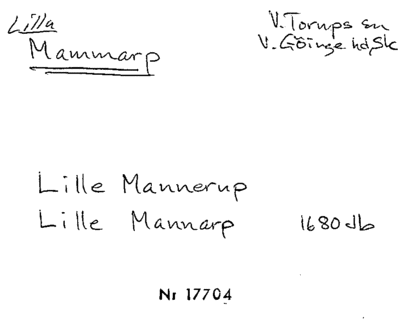 Lilla
Mammarp
V. Torups sn
V. Göinge hd, Sk
Lille Mannerup
Lille Mannarp 1680 db
Nr 17704